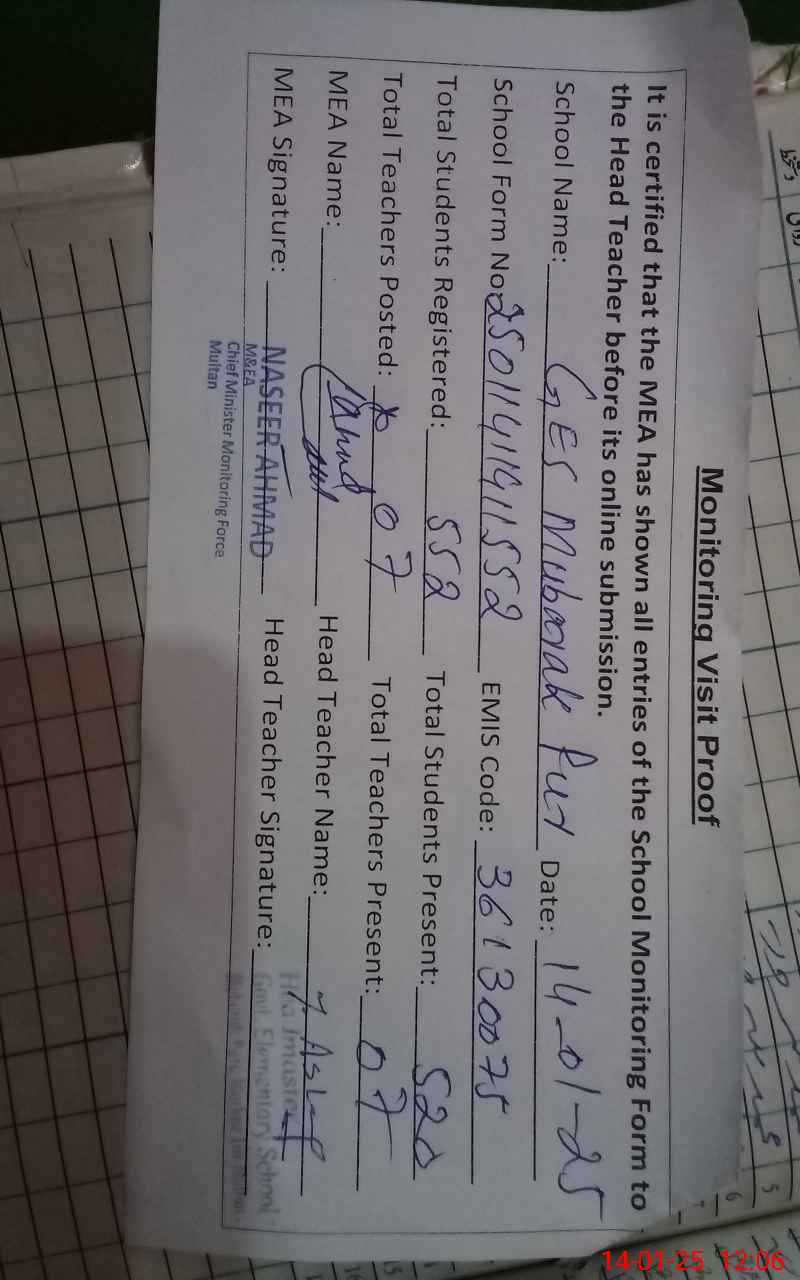 Monitoring Visit Proof
It is certified that the MEA has shown all entries of the School Monitoring Form to
the Head Teacher before its online submission.
School Name: GES Mubarak Pur Date: 14-01-25
School Form No. 25011411911552 EMIS Code: 36130075
Total Students Registered: 552 Total Students Present: 520
Total Teachers Posted: 07 Total Teachers Present: 07
MEA Name: Head Teacher Name:
MEA Signature: NASEER AHMAD Head Teacher Signature:
M&EA
Chief Minister Monitoring Force
Multan
Govt. Elementary School
14-01-25 12:06